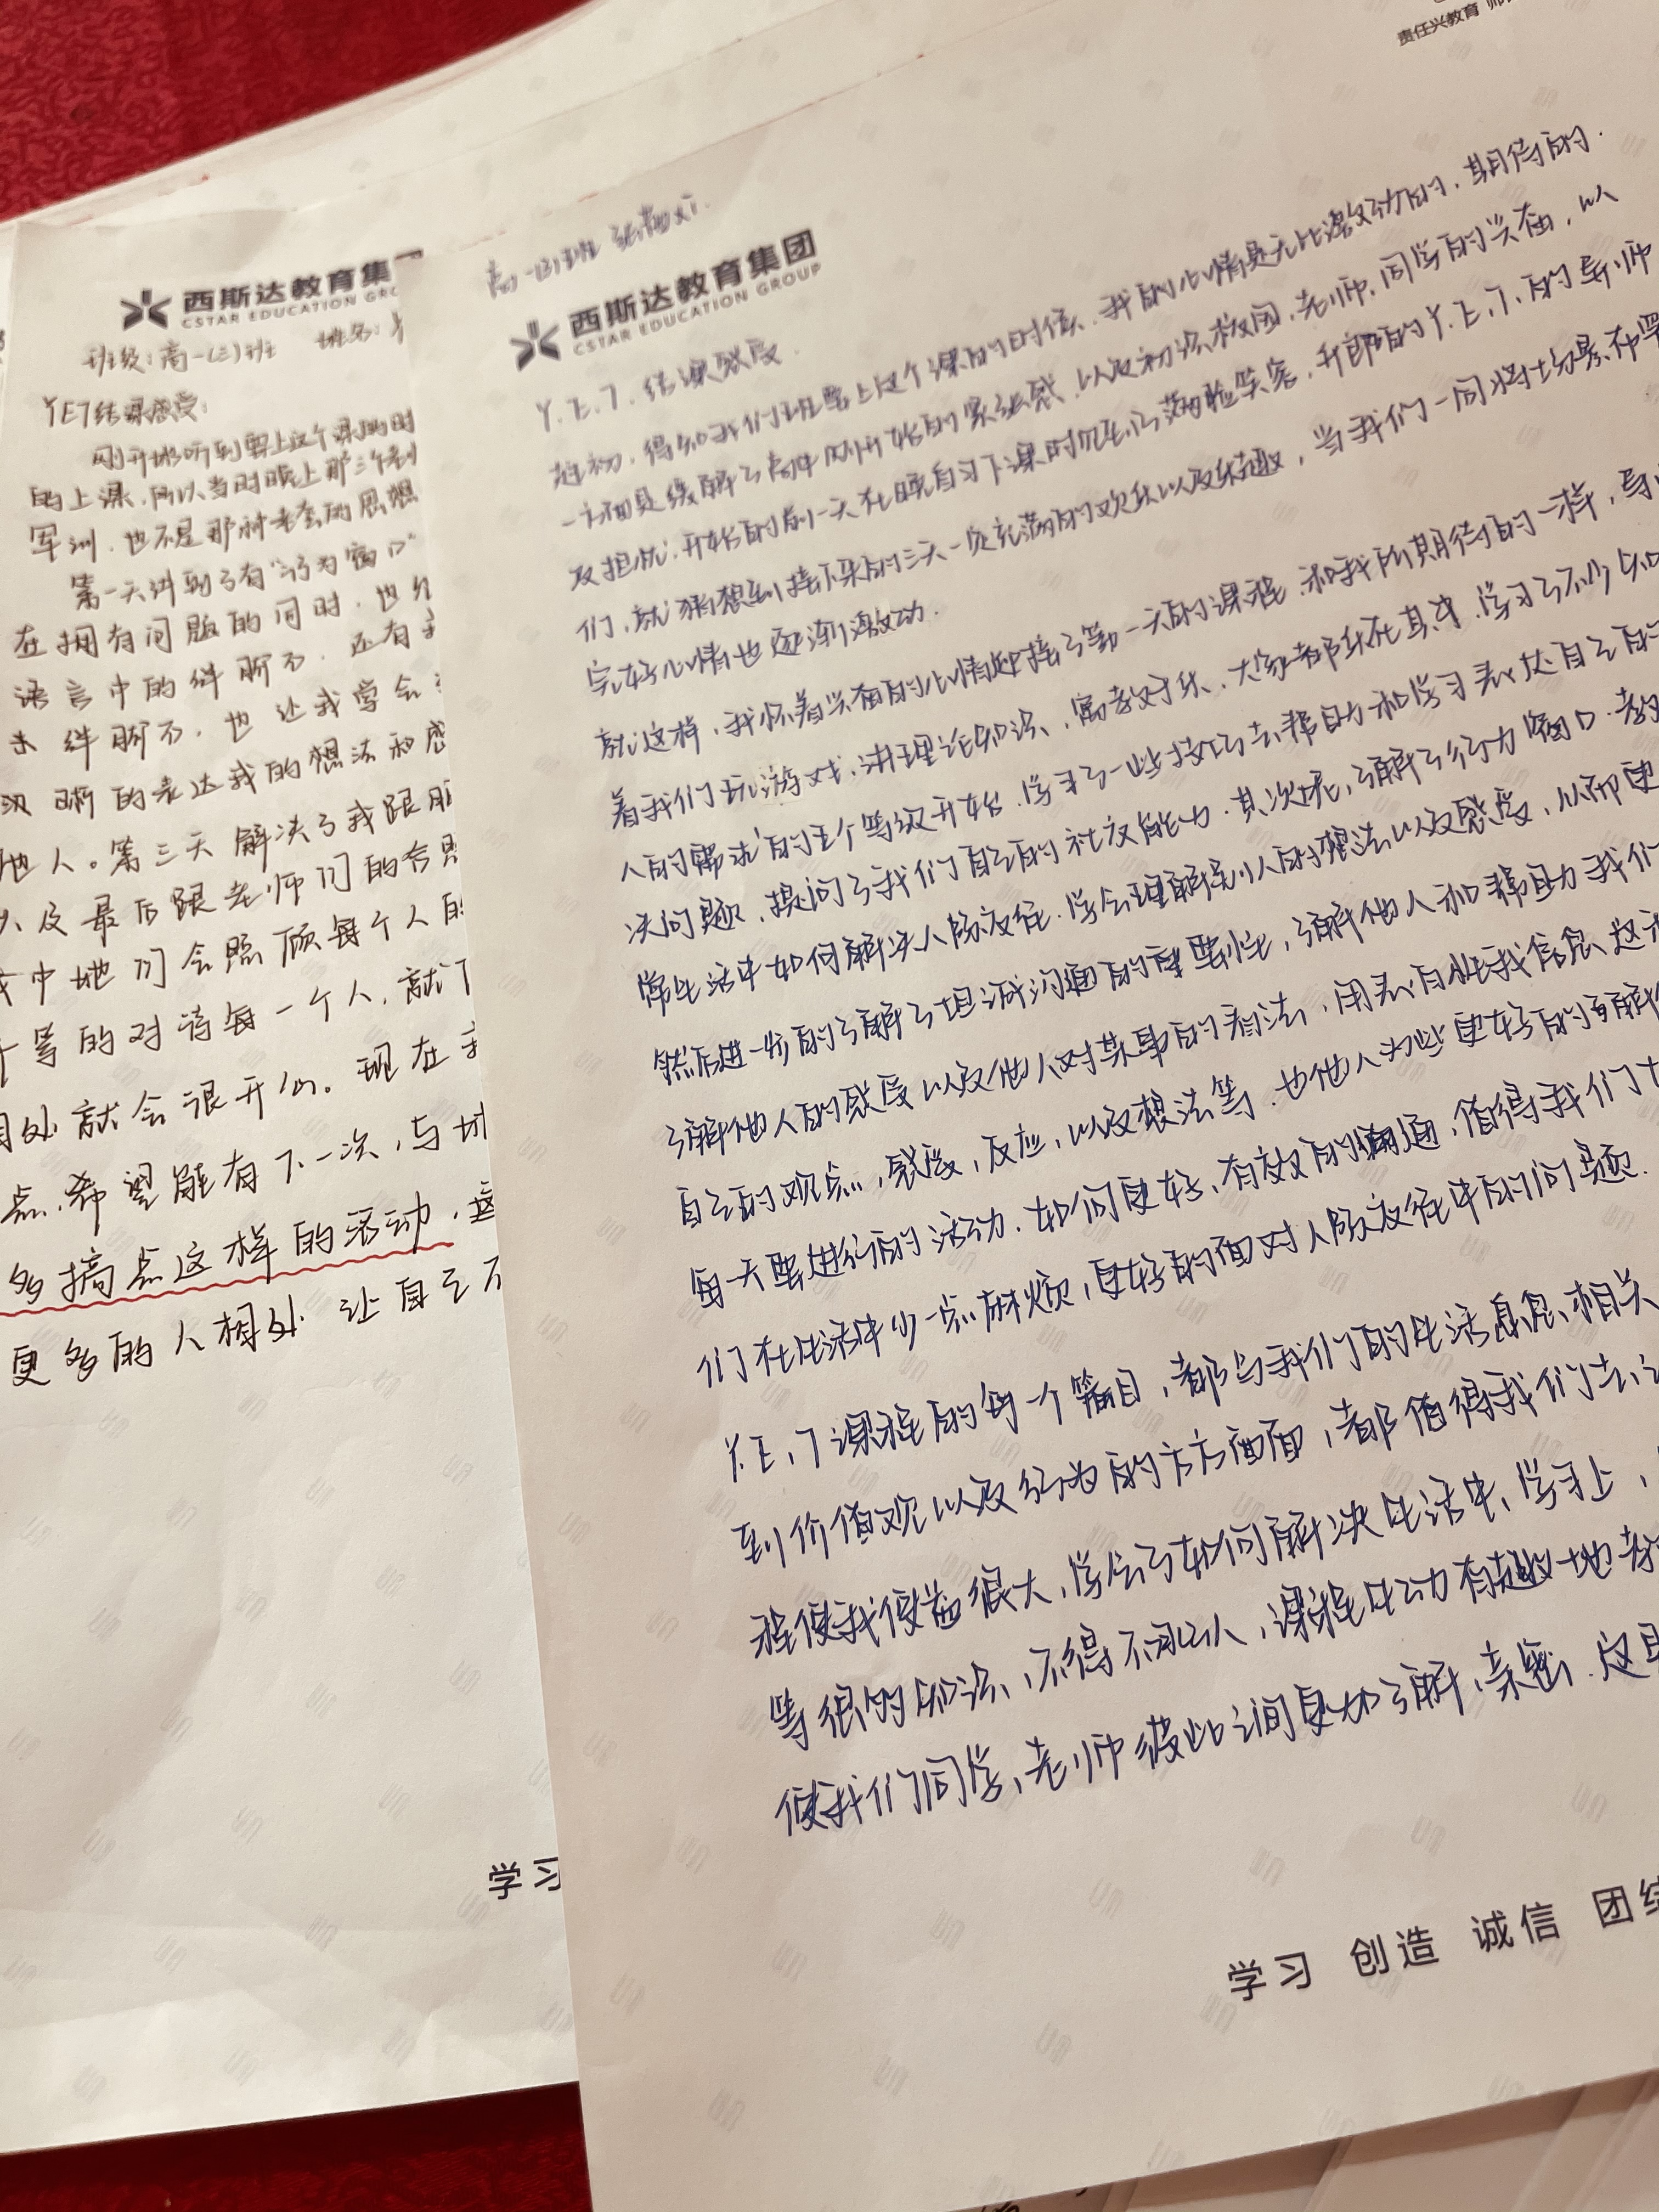 西斯达教育集
CSTAR EDUCATION GRO
班级:高一(三)班 姓名:
YET结课感受:
刚开始听到要上这个课的时
的上课,所以当时晚上那三个
军训,也不是那种老套的思想
第一天讲到了有“行为窗口”
在拥有问题的同时,也
语言中的绊脚石,还有
绊脚石,也让我学会
清晰的表达我的想法和感
他人。第三天解决了我跟朋
以及最后跟老师们的合照
中他们会照顾每个人的
等的对待每一个人,就
相处就会很开心。现在
点,希望能有下一次,与
多搞点这样的活动,
更多的人相处,让自己不
学习
责任兴教育 师
高一(3)班
西斯达教育集团
CSTAR EDUCATION GROUP
Y.E.T.结课感受.
起初,得知我们班要上这个课的时候,我的心情是无比激动的,期待的.
一方面是缓解了高中刚开始的紧张感,以及初识校园,老师,同学的兴奋,以
及担忧.开始的前一天在晚自习下课时见到了满脸笑容,开朗的Y.E.T.的导师
们,就猜想到接下来的三天一定充满的欢乐以及乐趣,当我们一同将场景布置
完好心情也逐渐激动.
就这样,我怀着兴奋的心情迎接了第一天的课程.和我所期待的一样,导
着我们玩游戏,讲理论知识,寓教于乐,大家都乐在其中,学习了不少知
人的需求的五个等级开始,学习了一些技巧去帮助和学习表达自己的
决问题,提问了我们自己的社交能力.其次就,了解了行为窗口.教
常生活中如何解决人际交往.学会理解别人的想法以及感受,从而更
然后进一步的了解了坦诚沟通的重要性,了解他人和帮助我们
了解他人的感受以及他人对某事的看法,用表白性我信息,这
自己的观点,感受,反应,以及想法等.也他人为些更好的了解
每一天要进行的活动.如何更好,有效的沟通,值得我们
们在生活中少一点麻烦,更好的面对人际交往中的问题.
Y.E.T课程的每一个篇目,都与我们的生活息息相关
到价值观以及行为的方方面面,都值得我们去
程使我受益很大,学会了如何解决生活中,学习上,
等很多知识,不得不承认,课程生动有趣地
使我们同学,老师彼此之间更加了解,亲密.这
学习 创造 诚信 团结